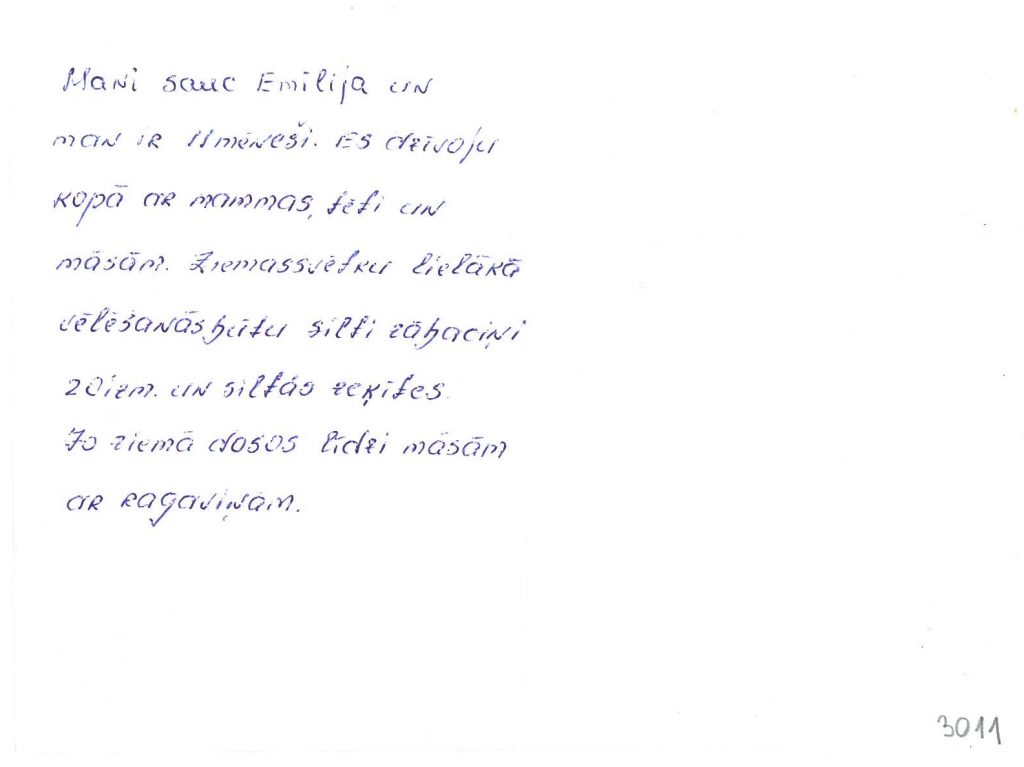 Mani sauc Emīlija un
man ir 11mēneši. Es dzīvoju
kopā ar mammas, tēti un
māsām. Ziemassvētku lielākā
vēlēšanāsbūtu silti zābaciņi
20izm. un siltās zeķītes.
Jo ziemā došos līdzi māsām
ar ragaviņām.
3011